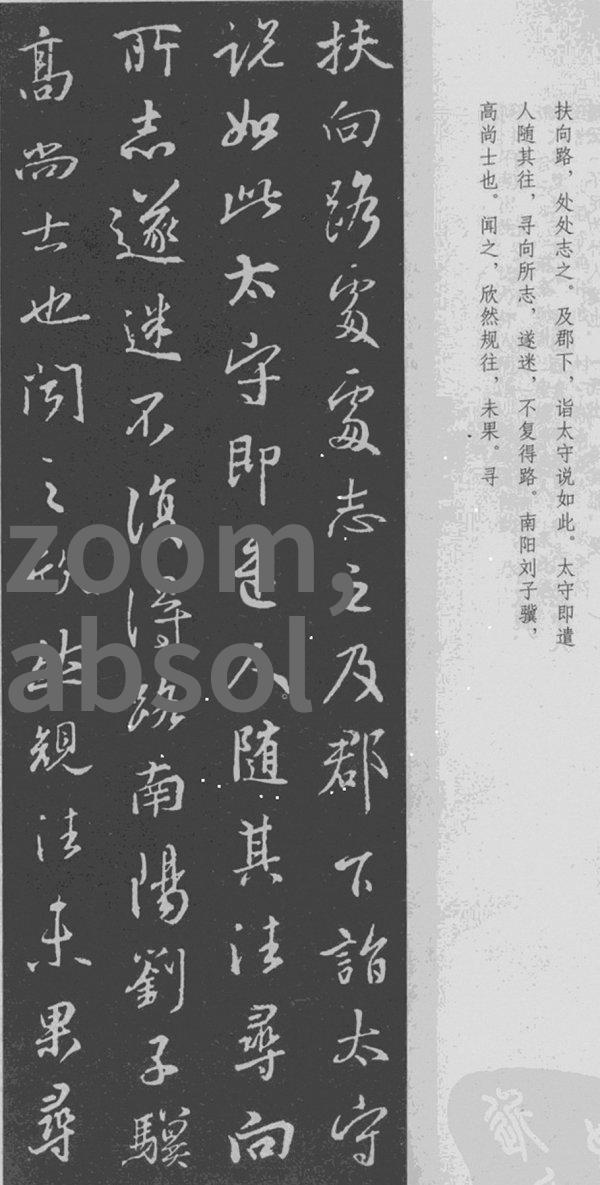 扶向路處處志之及郡下詣太守
说如此太守即遣人随其往尋向
所志遂迷不復得路南陽劉子驥
高尚士也聞之欣然規往未果尋
扶向路，处处志之。及郡下，诣太守说如此。太守即遣
人随其往，寻向所志，遂迷，不复得路。南阳刘子骥，
高尚士也。闻之，欣然规往，未果。寻
zoom,
absol